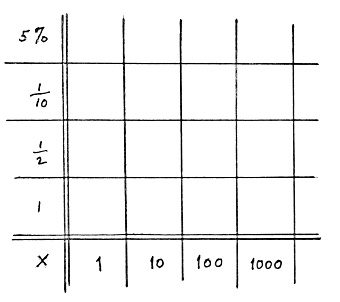 5%
1/10
1/2
1
X 1 10 100 1000